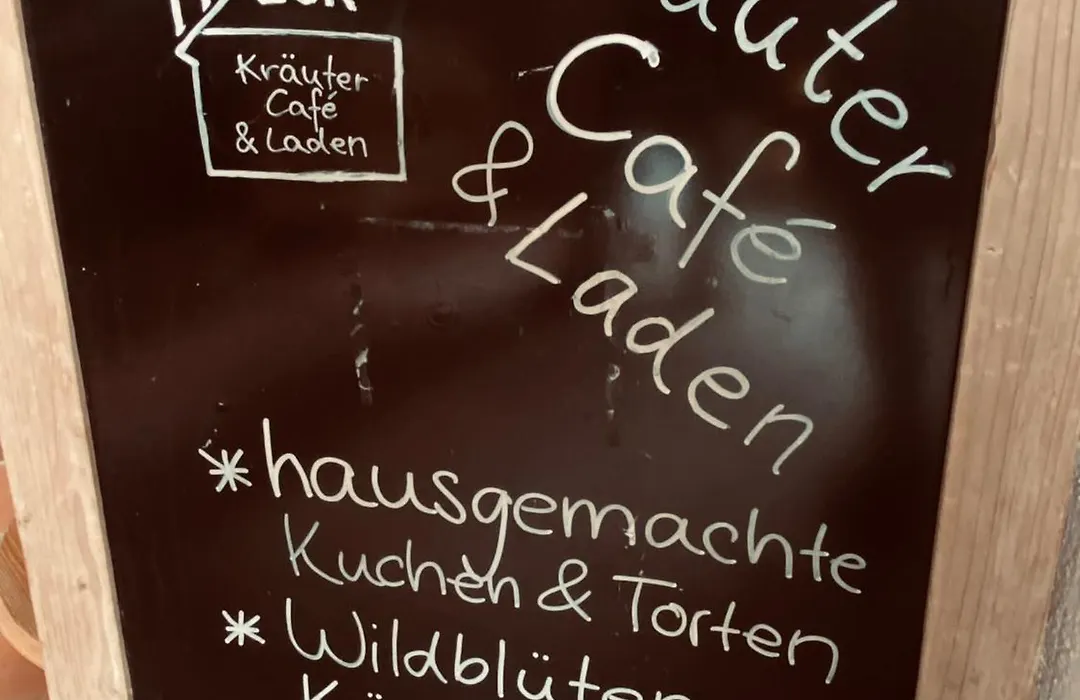 Kräuter
Café
& Laden
Café
& Laden
* hausgemachte
Kuchen & Torten
* Wildblüten